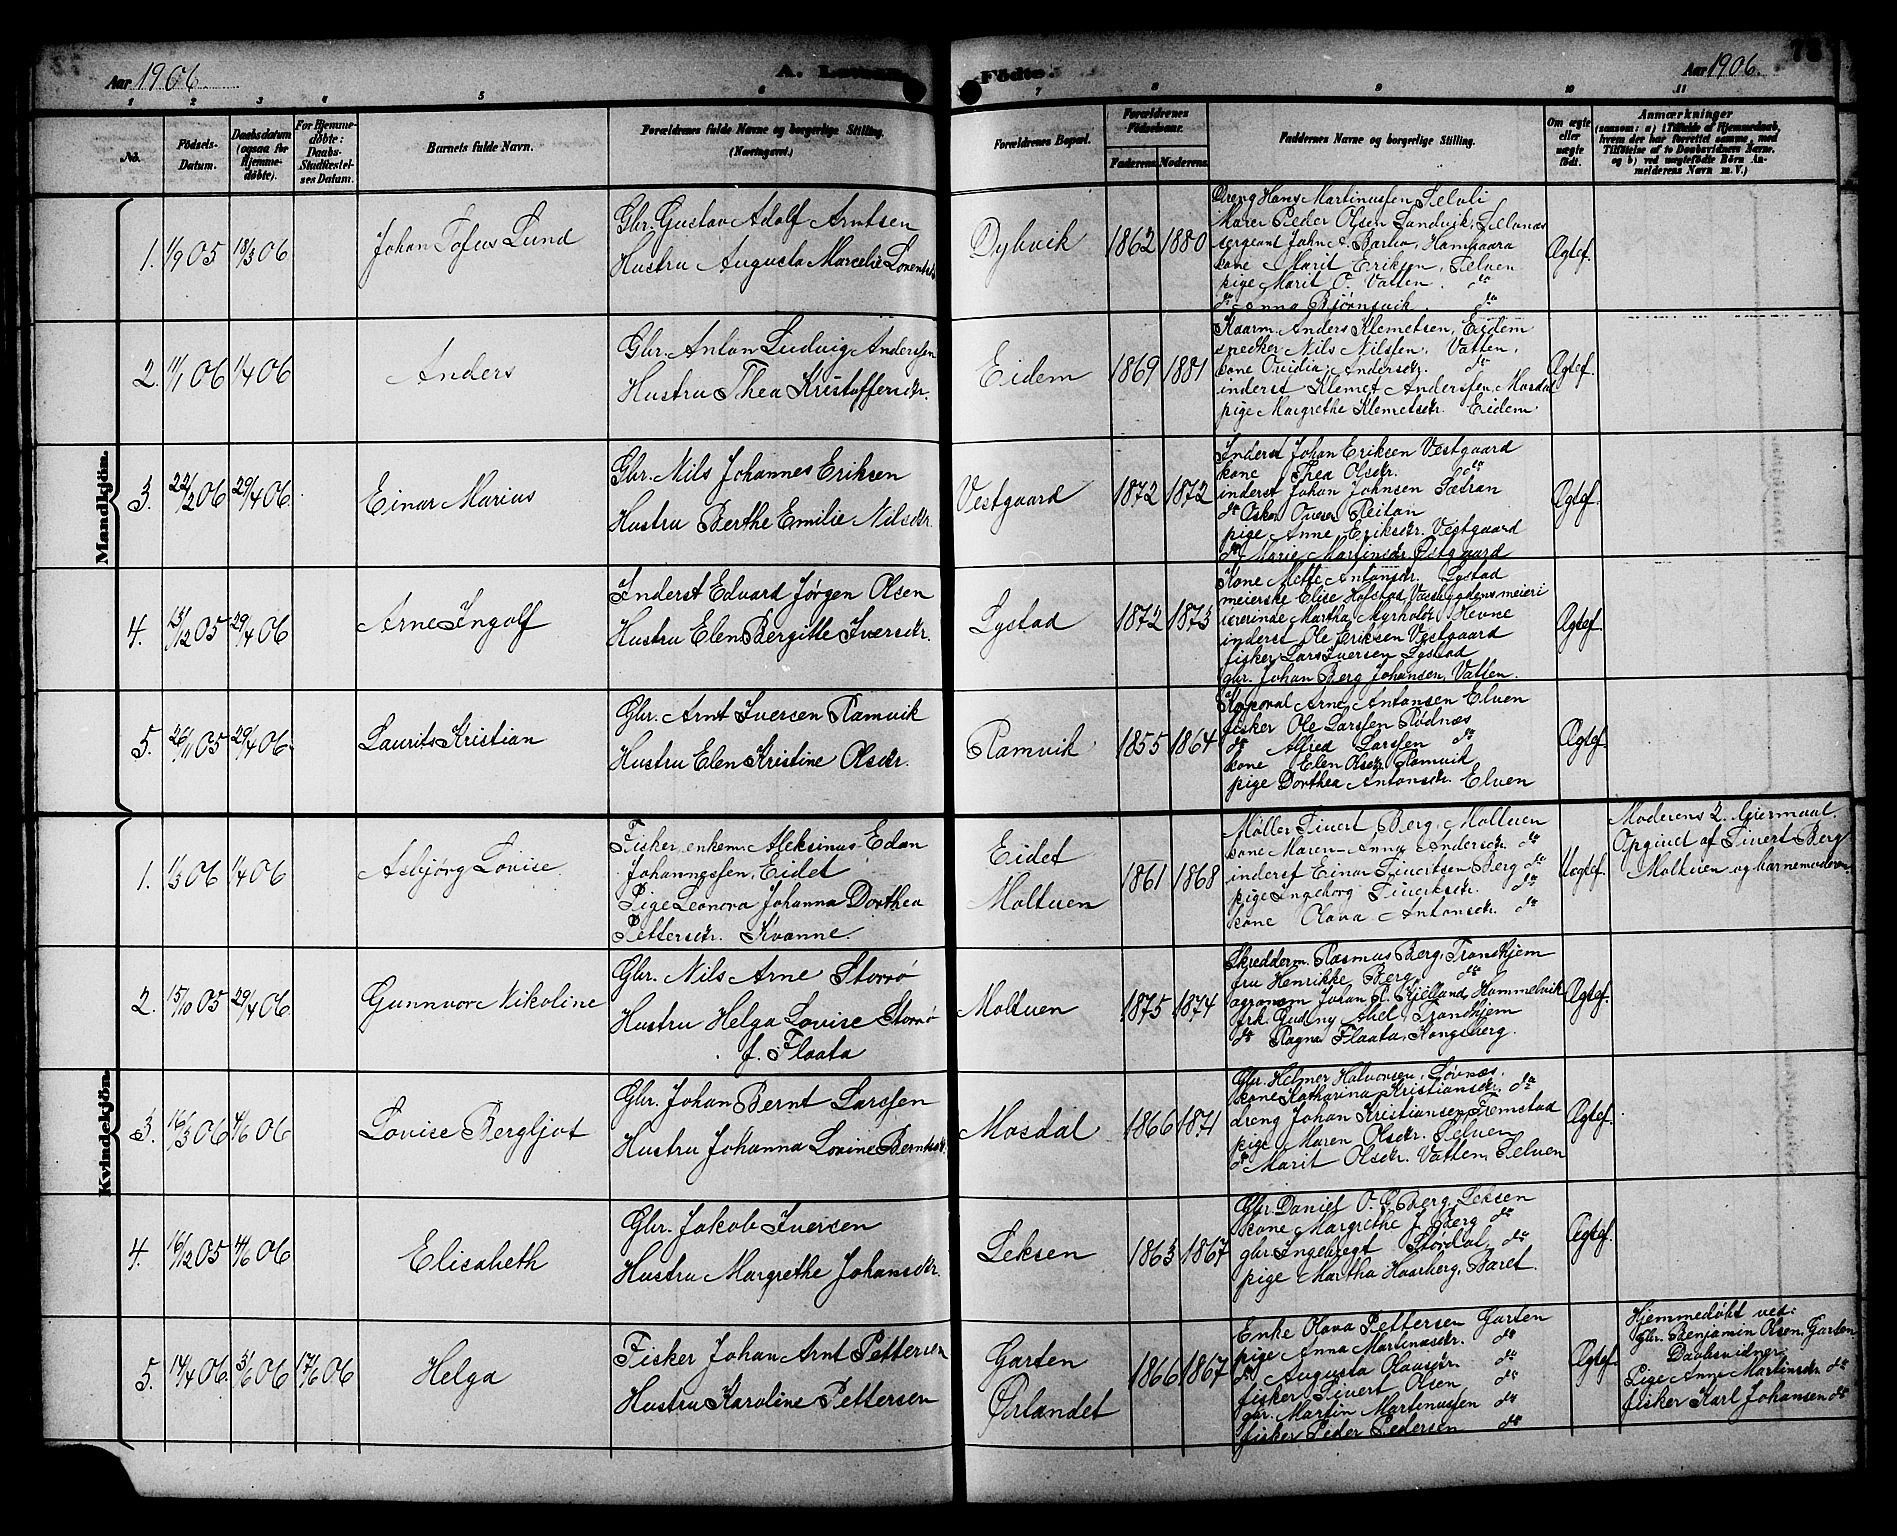 Aar 1906
A. Levende
Fødte.
Aar 1906.
78
1 2 3 4 5 6 7 8 9 10 11
No.
Födsels-
Datum.
Daabsdatum
(ogsaa for
Hjemme-
döbte).
For Hjemme-
döbte:
Daabs-
Stadfæstel-
ses Datum.
Barnets fulde Navn.
Forældrenes fulde Navne og borgerlige Stilling.
(Næringsvei.)
Forældrenes Bopæl.
Forældrenes
Födselsaar.
Faderens. Moderens.
Faddernes Navne og borgerlige Stilling.
Om ægte
eller
uægte
født.
Anmærkninger
(saasom: a) i Tilfælde af Hjemmedaab,
hvem der har forrettet samme, med
Tilföielse af to Daabsvidners Navne,
og b) ved uægtefödte Börn An-
melderens Navn m. V.)
Mandkjön.
1. 1/9 05 18/3 06
Johan Tofus Lund
Gbr. Gustav Adolf Arntsen
Hustru Augusta Marcelie Lorentsd
Dybvik
1862 1880
Dreng Hans Martinussen Selvli
Maler Peder Olsen Sandvik, Selvnæs
sergeant John A. Barbo, Hamaara
kone Marit Eriksen, Selven
pige Marit O. Vatten do
do Anna Bjørnsvik do
Ægtef.
2. 11/1 06 1/4 06
Anders
Gbr. Anton Ludvig Anderssen
Hustru Thea Kristoffersdtr.
Eidem
1869 1881
Kaarm. Anders Klemetsen, Eidem
snedker Nils Nilssen, Vatten,
kone Ovidia Andersdtr. do
inderst Klemet Anderssen, Mosdal
pige Margrethe Klemetsdtr. Eidem.
Ægtef.
3. 22/2 06 29/4 06
Einar Marius
Gbr. Nils Johannes Eriksen
Hustru Berthe Emilie Nilsdtr.
Vestgaard
1872 1872
Inderst Johan Eriksen Vestgaard
kone Thea Olsdtr. do
inderst Johan Johnsen Sætran
do Oskar Ovesen Reitan
pige Anne Eriksdtr. Vestgaard
do Marie Martinsdtr. Østgaard
Ægtef.
4. 15/12 05 29/4 06
Arne Ingolf
Inderst Edvard Jørgen Olsen
Hustru Elen Bergitte Iversdtr.
Lystad
1872 1873
Kone Mette Antonsdtr. Lystad
meierske Elise Hofstad, Vasbygdens meieri
lærerinde Martha Myrholdt, Hevne
inderst Ole Eriksen Vestgaard
fisker Lars Iversen Lystad
gbr. Johan Berg Johansen, Vatten.
Ægtef.
5. 26/11 05 29/4 06
Laurits Kristian
Gbr. Arnt Iversen Ramvik
Hustru Elen Kristine Olsdtr.
Ramvik
1855 1864
Korporal Arne Antonsen Elven
fisker Ole Larssen Rødnæs
do Alfred Larssen do
kone Elen Olsdtr. Ramvik
pige Dorthea Antonsdtr. Elven
Ægtef.
Kvindekjön.
1. 1/3 06 1/4 06
Asbjörg Lovise
Fisker, enkem. Aleksinus Edan
Johannessen, Eidet
Pige Leonora Johanna Dorthea
Pettersdtr. Kvanne.
Eidet
Moltuen
1861 1868
Møller Sivert Berg, Moltuen
kone Maren Anna Andersdtr. do
inderst Einar Sivertsen Berg do
pige Ingeborg Sivertsdtr. do
kone Olava Antonsdtr. do
Uægtef.
Moderens 2. leiermaal.
Opgivet af Sivert Berg
Moltuen og barnemoderen
2. 15/10 05 29/4 06
Gunnvor Nikoline
Gbr. Nils Arne Storrø
Hustru Helga Lovise Storrø
f. Flaata
Moltuen
1875 1874
Skredderm. Rasmus Berg, Trondhjem
fru Henrikke Berg do
agronom Johan R. Kjelland, Hommelvik
frk. Gudny Abel Trondhjem
do Ragna Flaata, Kongsberg.
Ægtef.
3. 16/3 06 4/6 06
Lovise Bergljot
Gbr. Johan Bernt Larssen
Hustru Johanna Lovine Berntsdtr.
Mosdal
1866 1871
Gbr. Helmer Halvorsen, Løvnæs,
kone Katharina Kristiansdtr. do
dreng Johan Kristiansen, Fremstad
pige Maren Olsdtr. Selven
do Marit Olsdtr. Vatten, Selven
Ægtef.
4. 16/12 05 4/6 06
Elisabeth
Gbr. Jakob Iversen
Hustru Margrethe Johansdtr.
Leksen
1863 1867
Gbr. Daniel O. Berg, Leksen
kone Margrethe J. Berg do
gbr. Ingebregt Stördal, do
pige Martha Haarberg, Baret.
Ægtef.
5. 14/4 06. 3/6 06 17/6 06
Helga
Fisker Johan Arnt Pettersen
Hustru Karoline Pettersen
Garten
Ørlandet
1866 1867
Enke Olava Pettersen Garten
pige Anna Martinasdtr. do
do Augusta Olausdtr. do
fisker Sivert Olsen do
gbr. Martin Martinussen do
fisker Peder Pedersen do
Ægtef.
Hjemmedøbt ved:
Gbr. Benjamin Olsen, Garten
Daabsvidner:
Pige Anna Martinsdtr. do
fisker Karl Johansen do